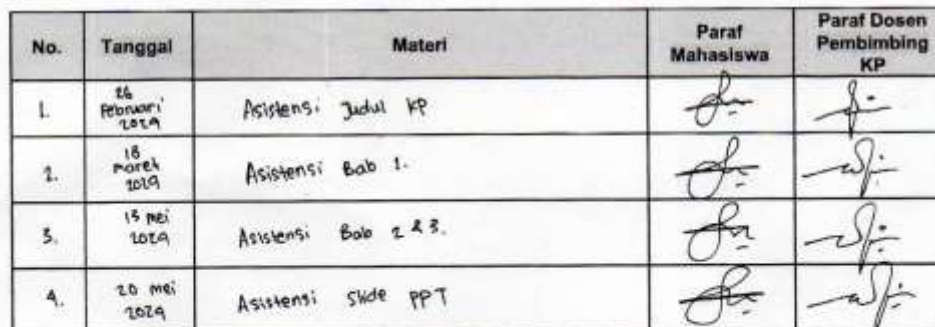 No. Tanggal Materi Paraf Mahasiswa Paraf Dosen Pembimbing KP
1. 26 Februari 2024 Asistensi Judul KP
2. 18 Maret 2024 Asistensi Bab 1.
3. 15 Mei 2024 Asistensi Bab 2 & 3.
4. 20 Mei 2024 Asistensi Slide PPT